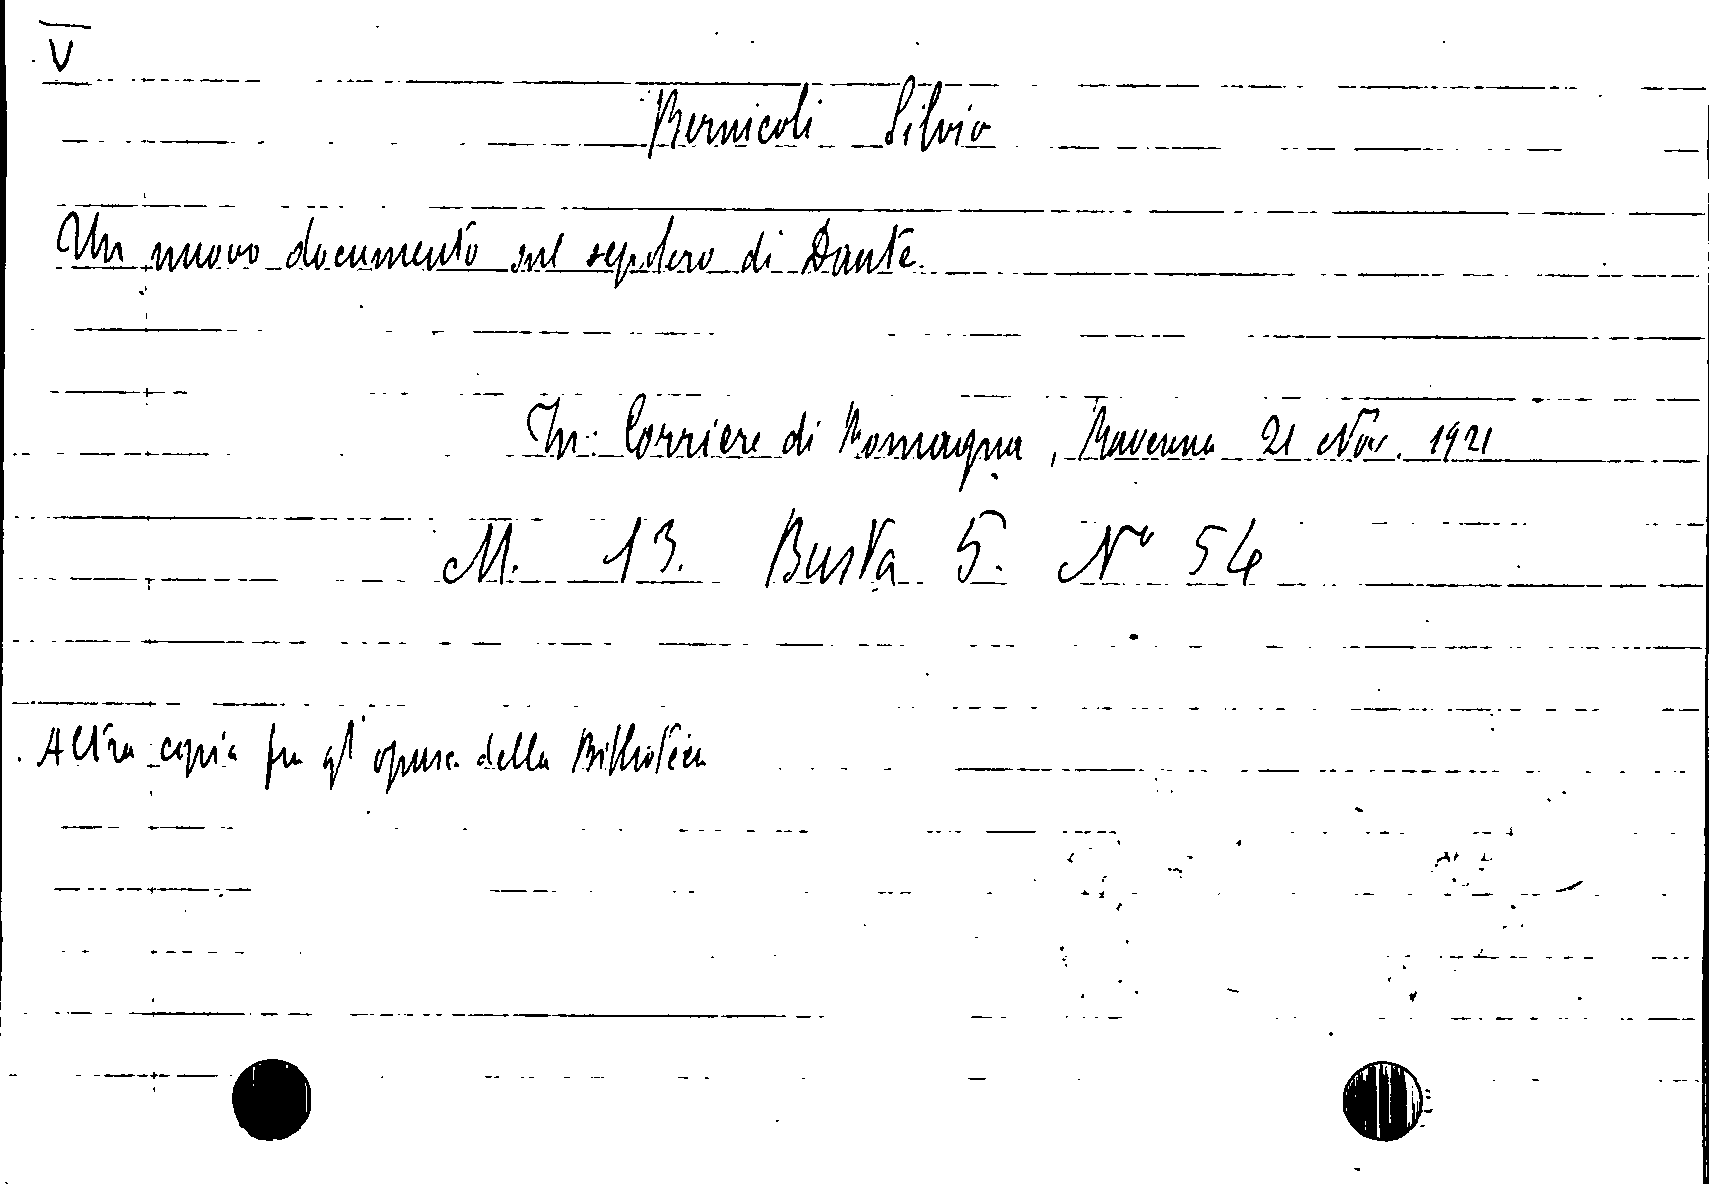 V
Bernicoli Silvio
Un nuovo documento sul sepolcro di Dante.
In: Corriere di Romagna, Ravenna 21 Nov. 1921
M. 13. Busta 5. Nº 54
Altra copia fra gl' opusc. della Biblioteca